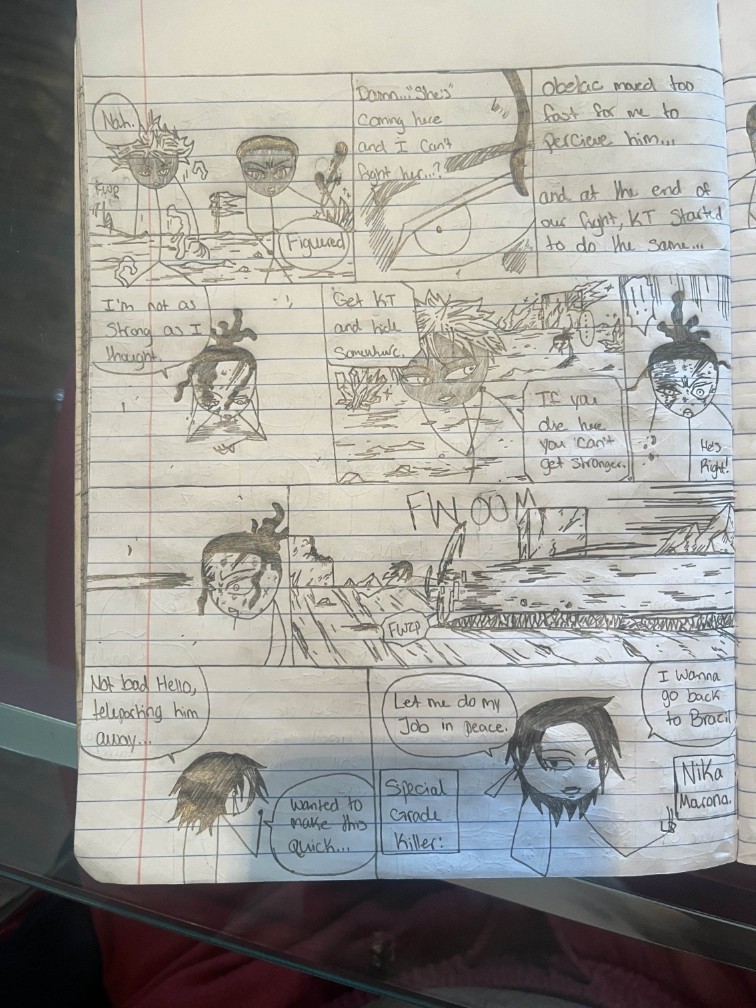 Nah.
FWP
Figured
Damn... "She's"
coming here
and I can't
fight her...?
Obelac moved too
fast for me to
percieve him...
and at the end of
our fight, KT started
to do the same...
I'm not as
strong as I
thought.
Get KT
and hide
somewhere.
If you
die here
you can't
get stronger.
!!
He's
Right!
FWOOM
FWZP
Not bad Hello,
teleporting him
away...
Wanted to
make this
quick...
Let me do my
Job in peace.
I wanna
go back
to Brazil
Special
Grade
Killer:
Nika
Marona.